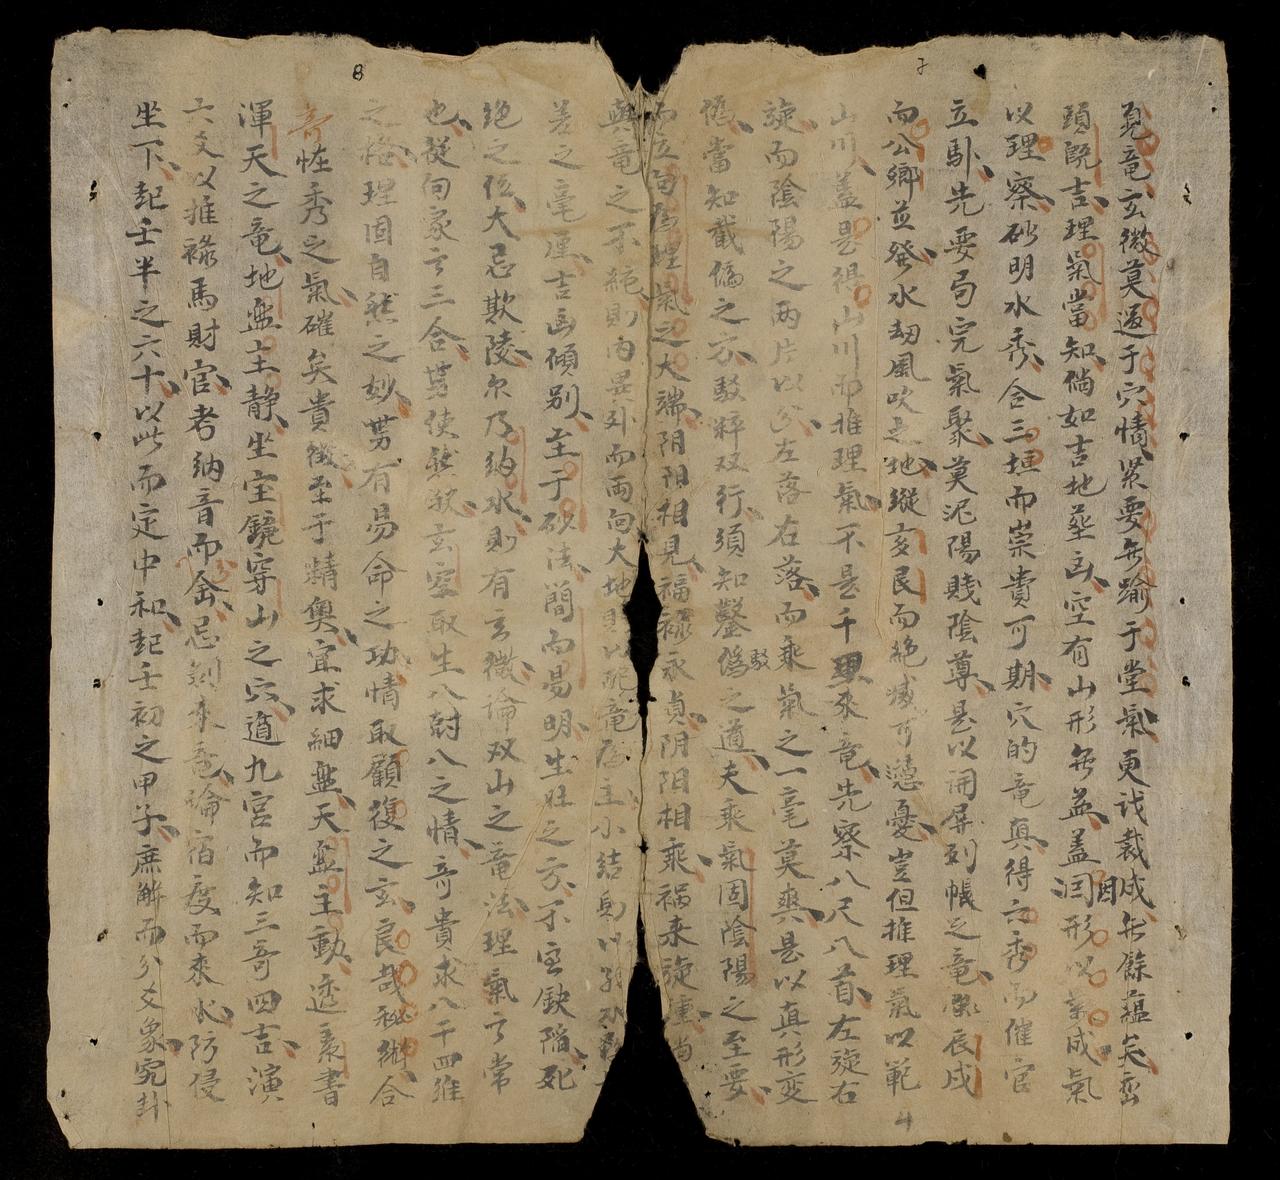 竜玄微莫逃于穴情紧要無踰于堂氣更識裁成無餘蘊矣峦
頭既吉理氣當知倘如吉地葬凶空有山形無益盖因形以氣成氣
以理察砂明水秀合三垣而崇貴可期穴的竜真得六秀而催官
立馱先要局完氣聚莫泥陽賤陰尊是以開屏列帳之竜辰戌
而公卿並發水刧風吹之地縱亥艮而絶滅可憂豈但推理氣以範
山川盖是得山川而推理氣不是千里來竜先察八尺八首左旋右
旋而陰陽之两片以分左落右落而乘氣之一毫莫爽是以真形变
僞當知截僞之方駁粹双行須知鑿駁僞之道夫乘氣固陰陽之至要
而立向爲理氣之大端阴阳相見福禄永貞阴阳相乘禍来旋踵尚
與竜之不純則内異外而両向大地則以配竜爲主小結則以
差之毫厘吉凶傾别至于砂法簡而易明生旺之方不宜缺陷死
绝之位大忌欺陵尔乃納水則有玄微論双山之竜法理氣之常
也從向家之三合 使然欤玄空取生八尅八之情奇貴求八干四維
之格理固自然之妙 有易命之功情取顧復之玄良哉秘 合
奇恠秀之氣確矣貴徵至于精奥宜求細盤天盘主動透 書
渾天之竜地盘主静坐宝鏡穿山之穴遁九宮而知三奇四吉演
六爻以推禄馬財官考納音而 忌剥来竜論宿度而来水防侵
坐下起壬半之六十以此而定中和起壬初之甲子庶解而分爻象究卦